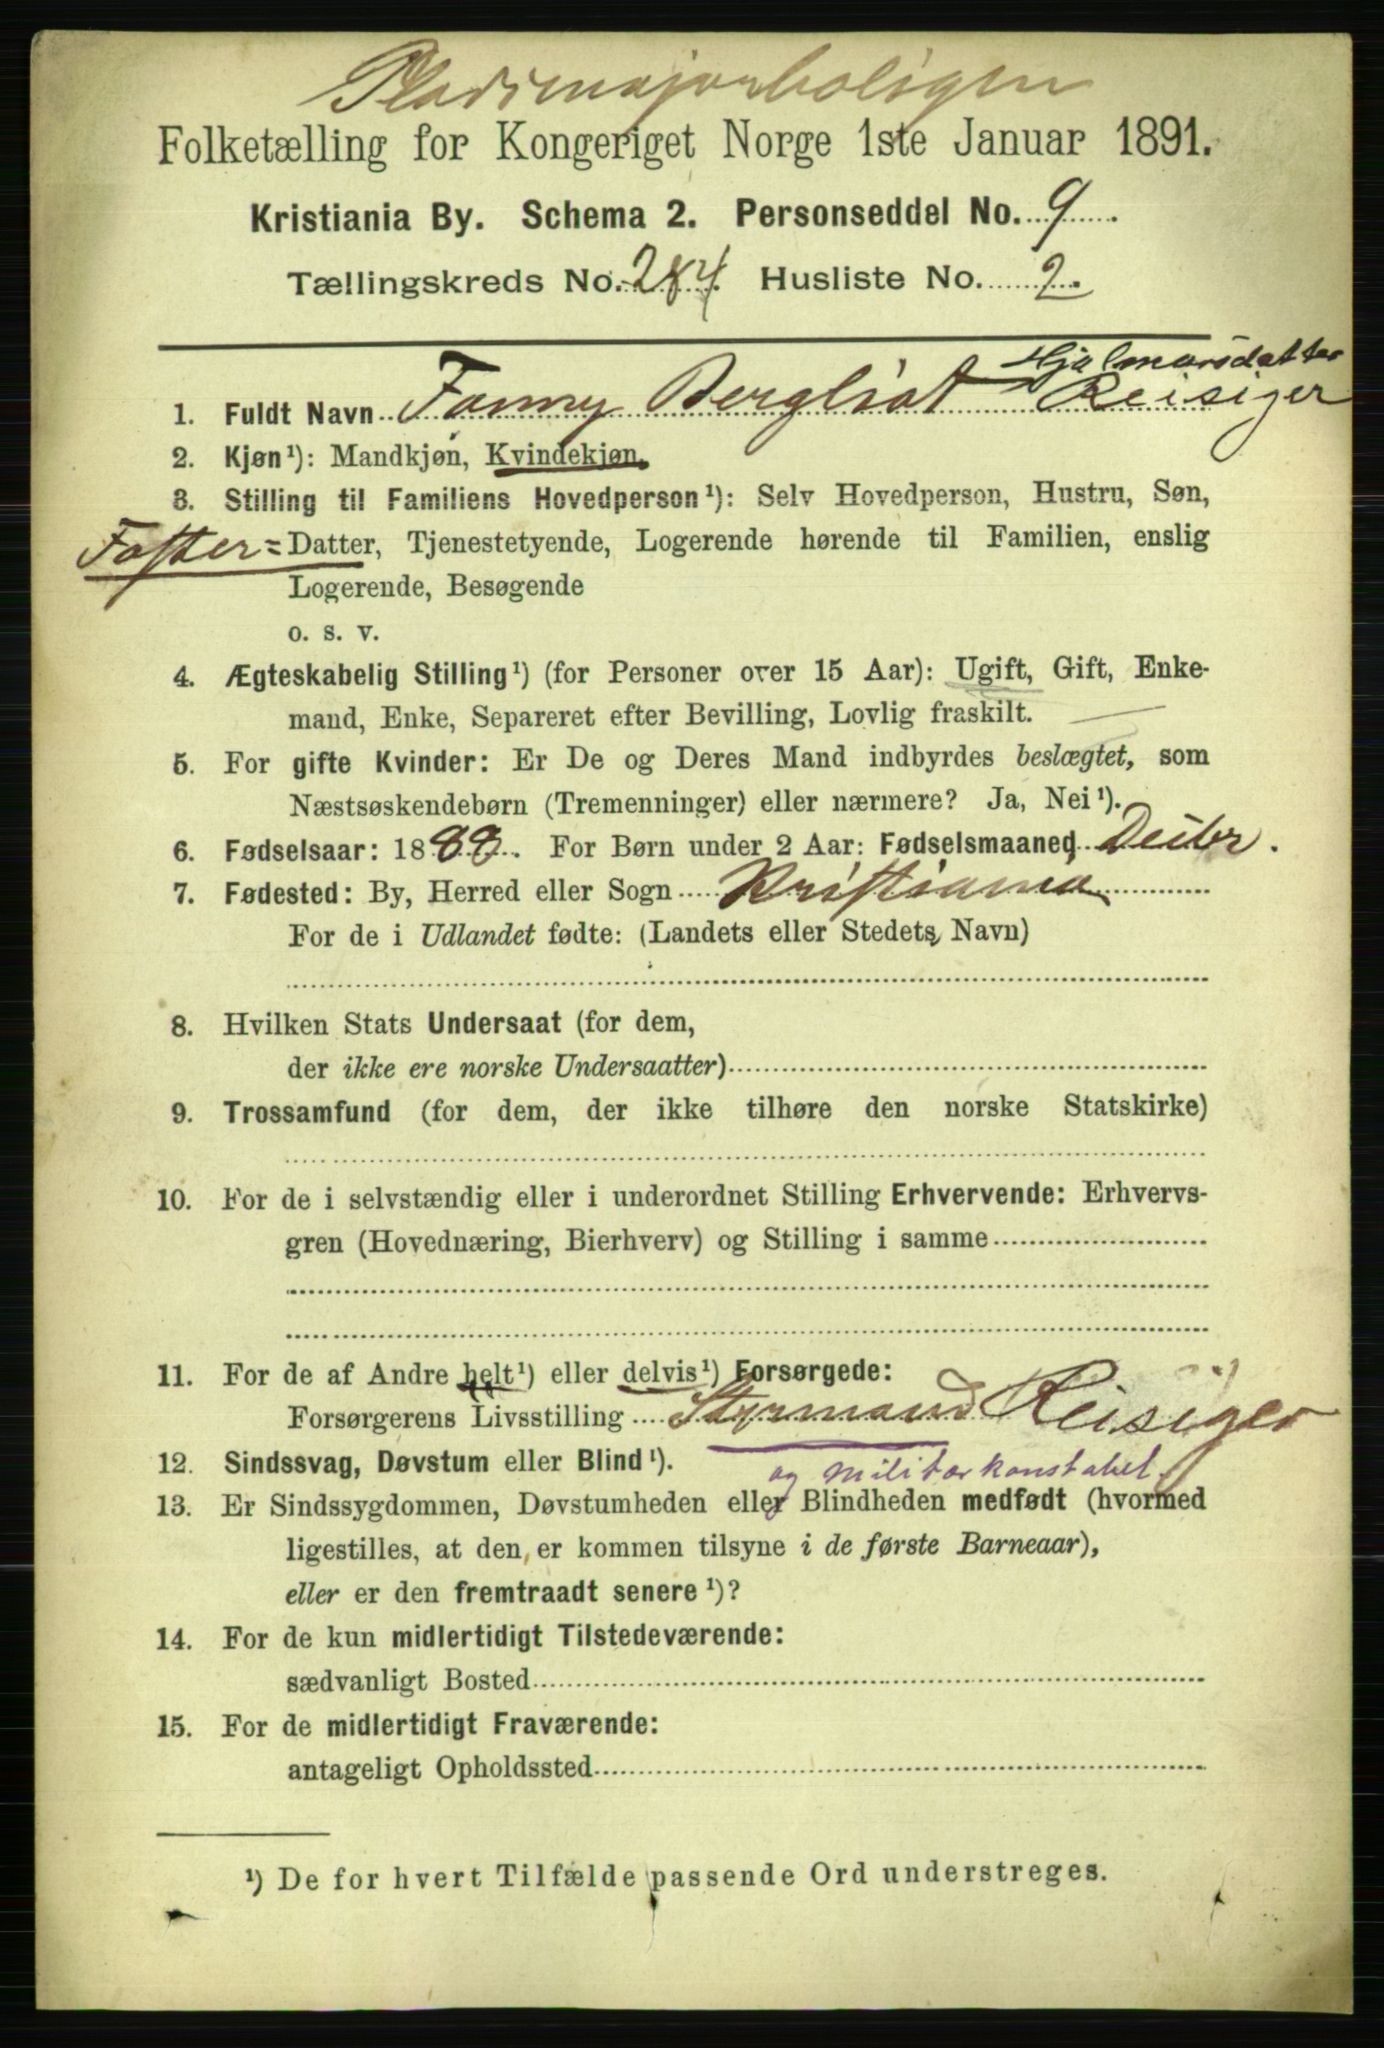 Pladsmajorboligen
Folketælling for Kongeriget Norge 1ste Januar 1891.
Kristiania By. Schema 2. Personseddel No. 9
Tællingskreds No. 284 Husliste No. 2.
Hjalmarsdatter
1. Fuldt Navn Fanny Bergliot Reisiger
2. Kjøn¹): Mandkjøn, Kvindekjøn.
3. Stilling til Familiens Hovedperson¹): Selv Hovedperson, Hustru, Søn,
Foster= Datter, Tjenestetyende, Logerende hørende til Familien, enslig
Logerende, Besøgende
o. s. v.
4. Ægteskabelig Stilling¹) (for Personer over 15 Aar): Ugift, Gift, Enke-
mand, Enke, Separeret efter Bevilling, Lovlig fraskilt.
5. For gifte Kvinder: Er De og Deres Mand indbyrdes beslægtet, som
Næstsøskendebørn (Tremenninger) eller nærmere? Ja, Nei¹).
6. Fødselsaar: 1888. For Børn under 2 Aar: Fødselsmaaned Decbr.
7. Fødested: By, Herred eller Sogn Kristiania
For de i Udlandet fødte: (Landets eller Stedets Navn)
8. Hvilken Stats Undersaat (for dem,
der ikke ere norske Undersaatter)
9. Trossamfund (for dem, der ikke tilhøre den norske Statskirke)
10. For de i selvstændig eller i underordnet Stilling Erhvervende: Erhvervs-
gren (Hovednæring, Bierhverv) og Stilling i samme
11. For de af Andre helt¹) eller delvis¹) Forsørgede:
Forsørgerens Livsstilling Styrmand Reisiger
og militærkonstabel.
12. Sindssvag, Døvstum eller Blind¹).
13. Er Sindssygdommen, Døvstumheden eller Blindheden medfødt (hvormed
ligestilles, at den er kommen tilsyne i de første Barneaar),
eller er den fremtraadt senere¹)?
14. For de kun midlertidigt Tilstedeværende:
sædvanligt Bosted
15. For de midlertidigt Fraværende:
antageligt Opholdssted
¹) De for hvert Tilfælde passende Ord understreges.